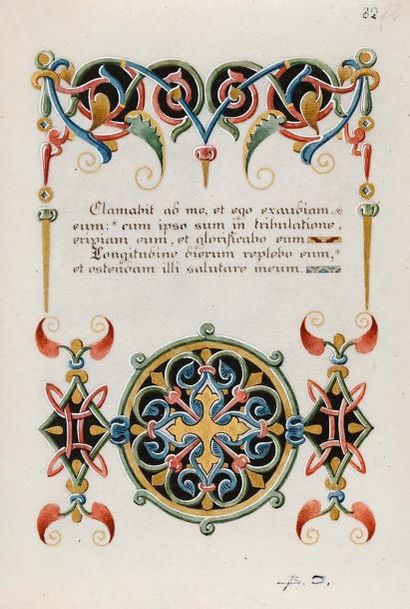 82
Clamabit ad me, et ego exaudiam
eum: * cum ipso sum in tribulatione,
eripiam eum, et glorificabo eum
Longitudine dierum replebo eum, *
et ostendam illi salutare meum.